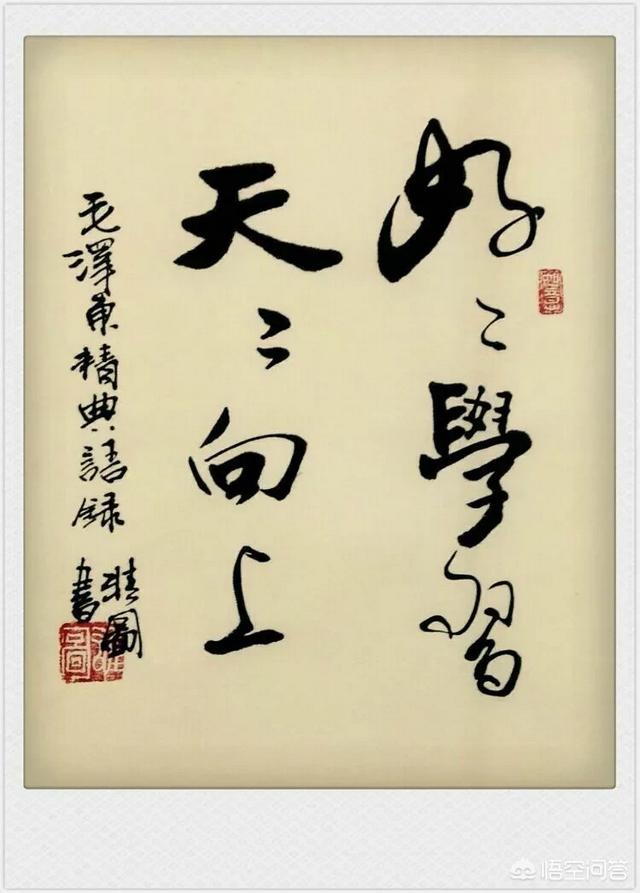 好〻學習
天〻向上
毛澤東精典語録
圖
書
悟空问答